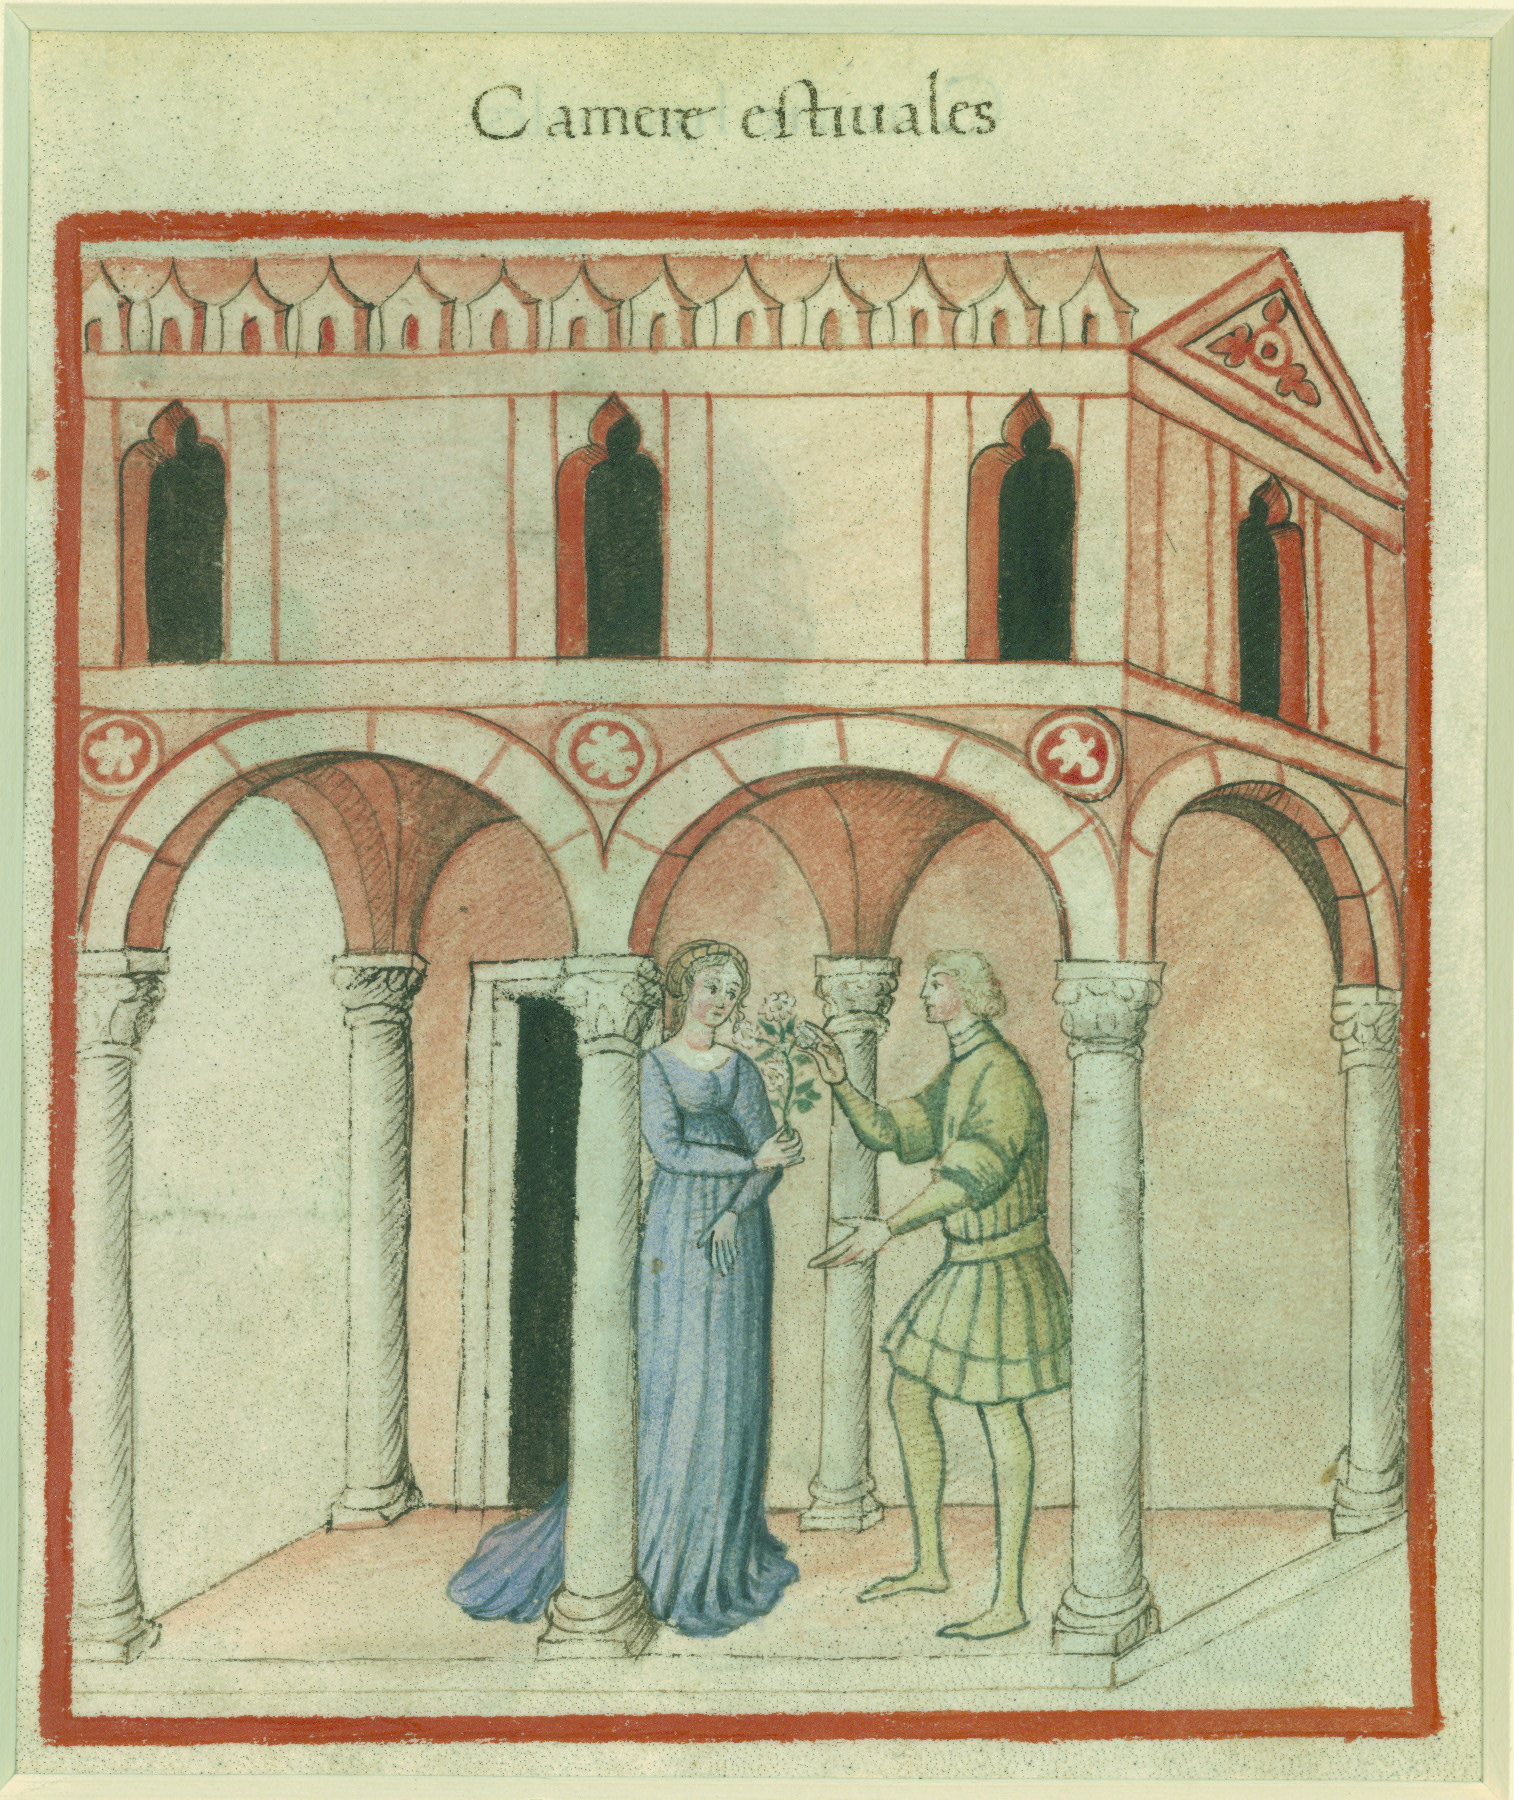 Camere estiuales